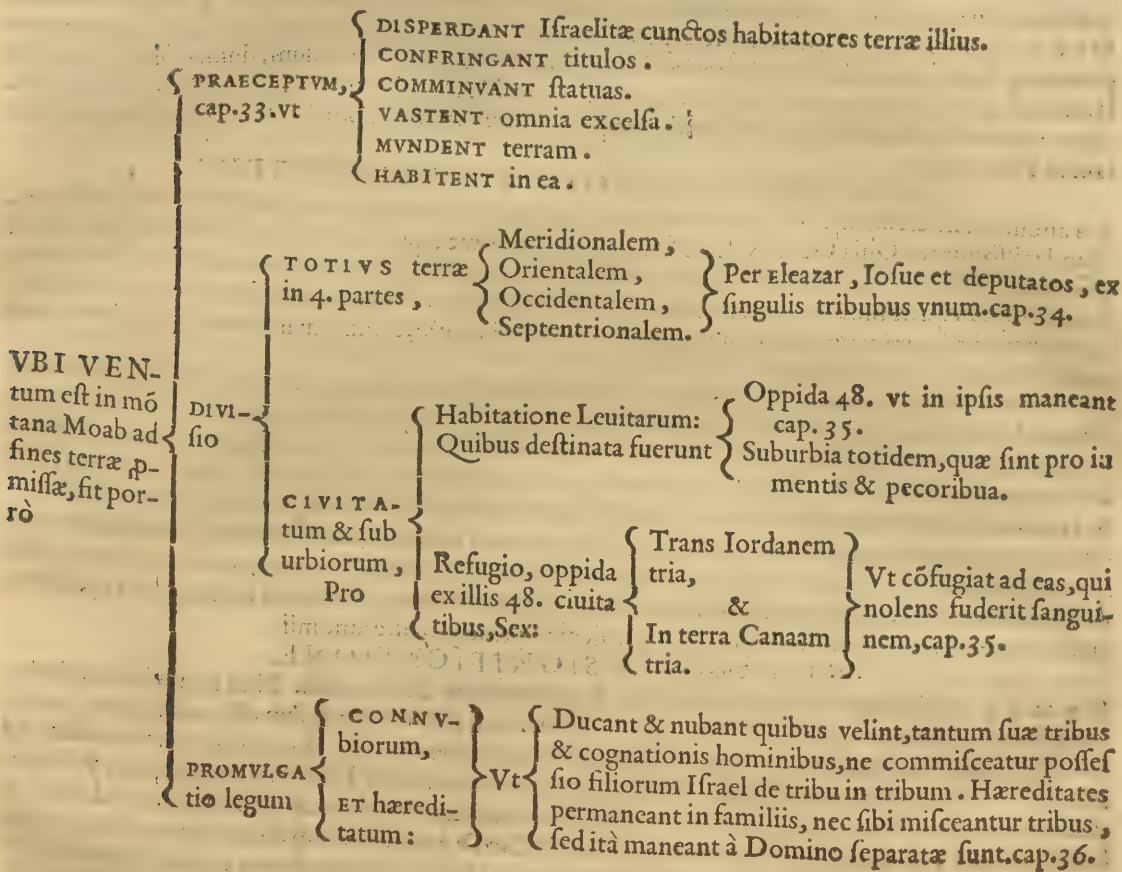 VBI VEN-
tum eſt in mõ
tana Moab ad
fines terræ ꝓ-
miſſæ, fit por-
rò
PRAECEPTVM,
cap.33.vt
DISPERDANT Iſraelitæ cunctos habitatores terræ illius.
CONFRINGANT titulos.
COMMINVANT ſtatuas.
VASTENT omnia excelſa.
MVNDENT terram.
HABITENT in ea.
DIVI-
ſio
TOTIVS terræ
in 4. partes,
Meridionalem,
Orientalem,
Occidentalem,
Septentrionalem.
Per Eleazar, Ioſue et deputatos, ex
ſingulis tribubus vnum.cap.34.
CIVITA-
tum & ſub
urbiorum,
Pro
Habitatione Leuitarum:
Quibus deſtinata fuerunt
Oppida 48. vt in ipſis maneant
cap. 35.
Suburbia totidem, quæ ſint pro iu
mentis & pecoribua.
Refugio, oppida
ex illis 48. ciuita
tibus, Sex:
Trans Iordanem
tria,
&
In terra Canaam
tria.
Vt cõfugiat ad eas, qui
nolens fuderit ſangui-
nem, cap.35.
PROMVLGA
tio legum
CONNV-
biorum,
ET hæredi-
tatum:
Vt
Ducant & nubant quibus velint, tantum ſuæ tribus
& cognationis hominibus, ne commiſceatur poſſeſ
ſio filiorum Iſrael de tribu in tribum. Hæreditates
permaneant in familiis, nec ſibi miſceantur tribus,
ſed ità maneant à Domino ſeparatæ ſunt.cap.36.